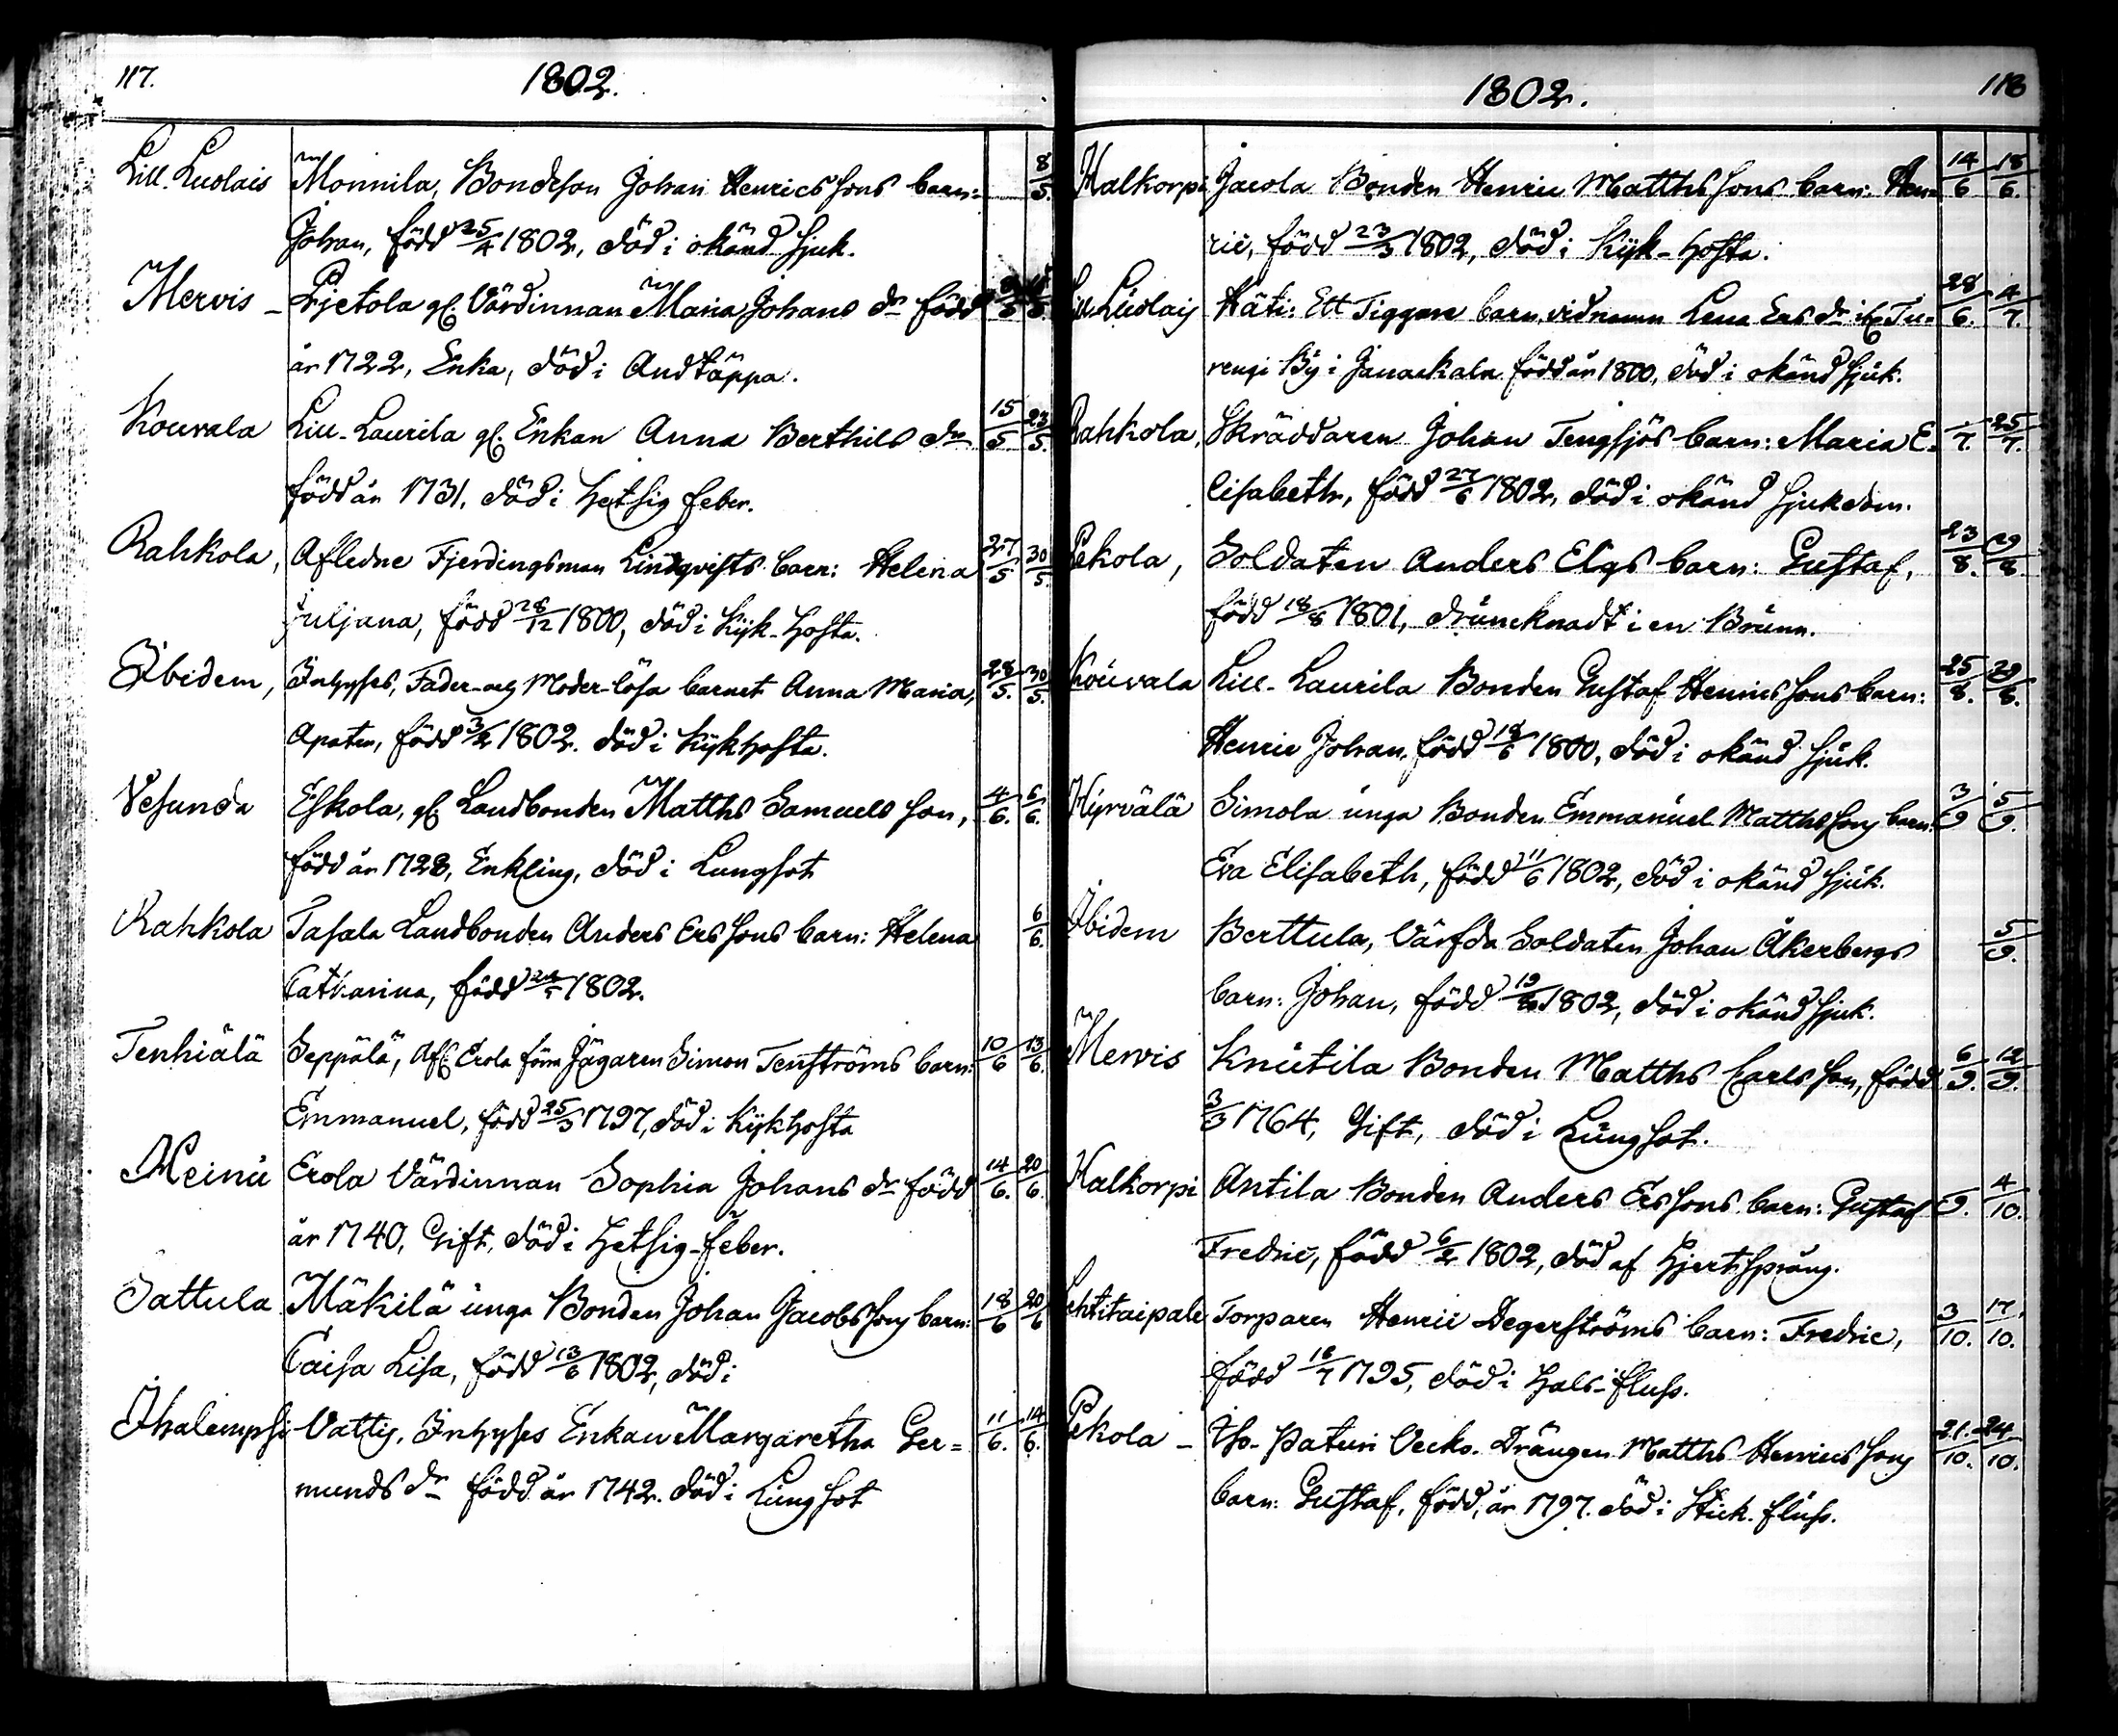 117.
1802.
Lill. Luolais Monnila, Bondeson Johan Henrics sons barn: 8/5.
Johan, född 25/4 1802, död i okänd sjuk.
Mervis - Pjetola gl. Värdinnan Maria Johans dr född
år 1722, Enka, död i Andtäppa.
Kouvala Lill-Laurila gl. Enkan Anna Berthils dr 15/5. 23/5.
född år 1731, död i hetsig feber.
Rahkola, Afledne Fjerdingsman Lindqvists barn: Helena 27/5 30/5.
Juljana, född 28/12 1800, död i Kijk-hosta.
Ibidem, Inhyses, Fader- och Moder-lösa barnet Anna Maria, 28/5. 30/5.
Apaten, född 3/2 1802. död i Kijkhosta.
Vesunda Eskola, gl. Landbonden Matths Samuels son, 4/6. 6/6.
född år 1728, Enkling, död i Lungsot
Rahkola Tasala Landbonden Anders Ers sons barn: Helena 6/6.
Catharina, född 1802.
Tenhiälä Seppälä, Afl. Erola förra Jägaren Simon Tenströms barn: 10/6 13/6.
Emmanuel, född 25/3 1797, död i Kijkhosta
Meinu Erola Värdinnan Sophia Johans dr född 14/6. 20/6.
år 1740, Gift, död i hetsig-feber.
Sattula Mäkilä unga Bonden Johan Jacobs sons barn: 18/6 20/6
Caisa Lisa, född 13/6 1802, död i
Ihalempsi Vattis, Inhyses Enkan Margaretha Ger= 11/6. 14/6.
munds dr född år 1742. död i Lungsot
1802.
118
Halkorpi Jacola Bonden Henric Matths sons barn: Hen= 14/6 18/6.
ric, född 23/3 1802, död i Kijk-hosta.
Lill. Luolais Häti: Ett Tiggare barn, vid namn Lena Ers dr ifr. Tu= 28/6. 4/7.
rengi By i Janackala född år 1800, död i okänd sjuk.
Rahkola, Skräddaren Johan Tengsjös barn: Maria E- /7. 25/7.
lisabeth, född 27/6 1802, död i okänd sjukdom.
Pekola, Soldaten Anders Elgs barn: Gustaf, 23/8. 29/8
född 18/8 1801, druncknadt i en Brunn.
Kouvala Lill-Laurila Bonden Gustaf Henrics sons barn: 25/8. 29/8.
Henric Johan, född 18/6 1800, död i okänd sjuk.
Hyrvälä Simola unga Bonden Emmanuel Matths sons barn: 3/9 5/9.
Eva Elisabeth, född 11/6 1802, död i okänd sjuk.
Ibidem Berttula, Värfda Soldaten Johan Åkerbergs 5/9.
barn: Johan, född 1802, död i okänd sjuk.
Mervis Knutila Bonden Matths Carls son, född 6/9. 12/9.
3/3 1764, Gift, död i Lungsot.
Halkorpi Antila Bonden Anders Ers sons barn: Gustaf /9. 4/10.
Fredric, född 6/2 1802, död af Hjertspräng.
Lehtitaipale Torparen Henric Degerströms barn: Fredric, 3/10. 17/10.
född 18/7 1795, död i Hals-fluss.
Pekola - Iso-Paturi Vecko-Drängen Matths Henrics sons 21/10. 24/10.
barn: Gustaf, född, år 1797. död i Stick-fluss.